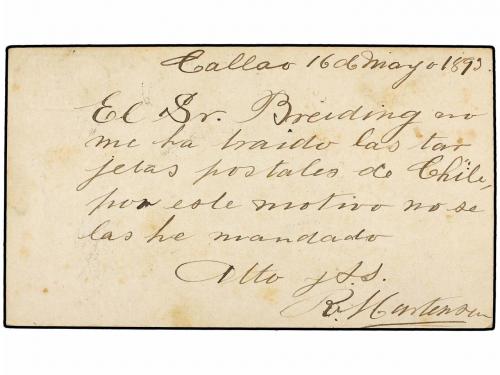 Callao 16 de Mayo 1893.
El Sr. Breiding no
me ha traido las tar
jetas postales de Chile,
por este motivo no se
las he mandado
Atto y S.S.
R. Martensen